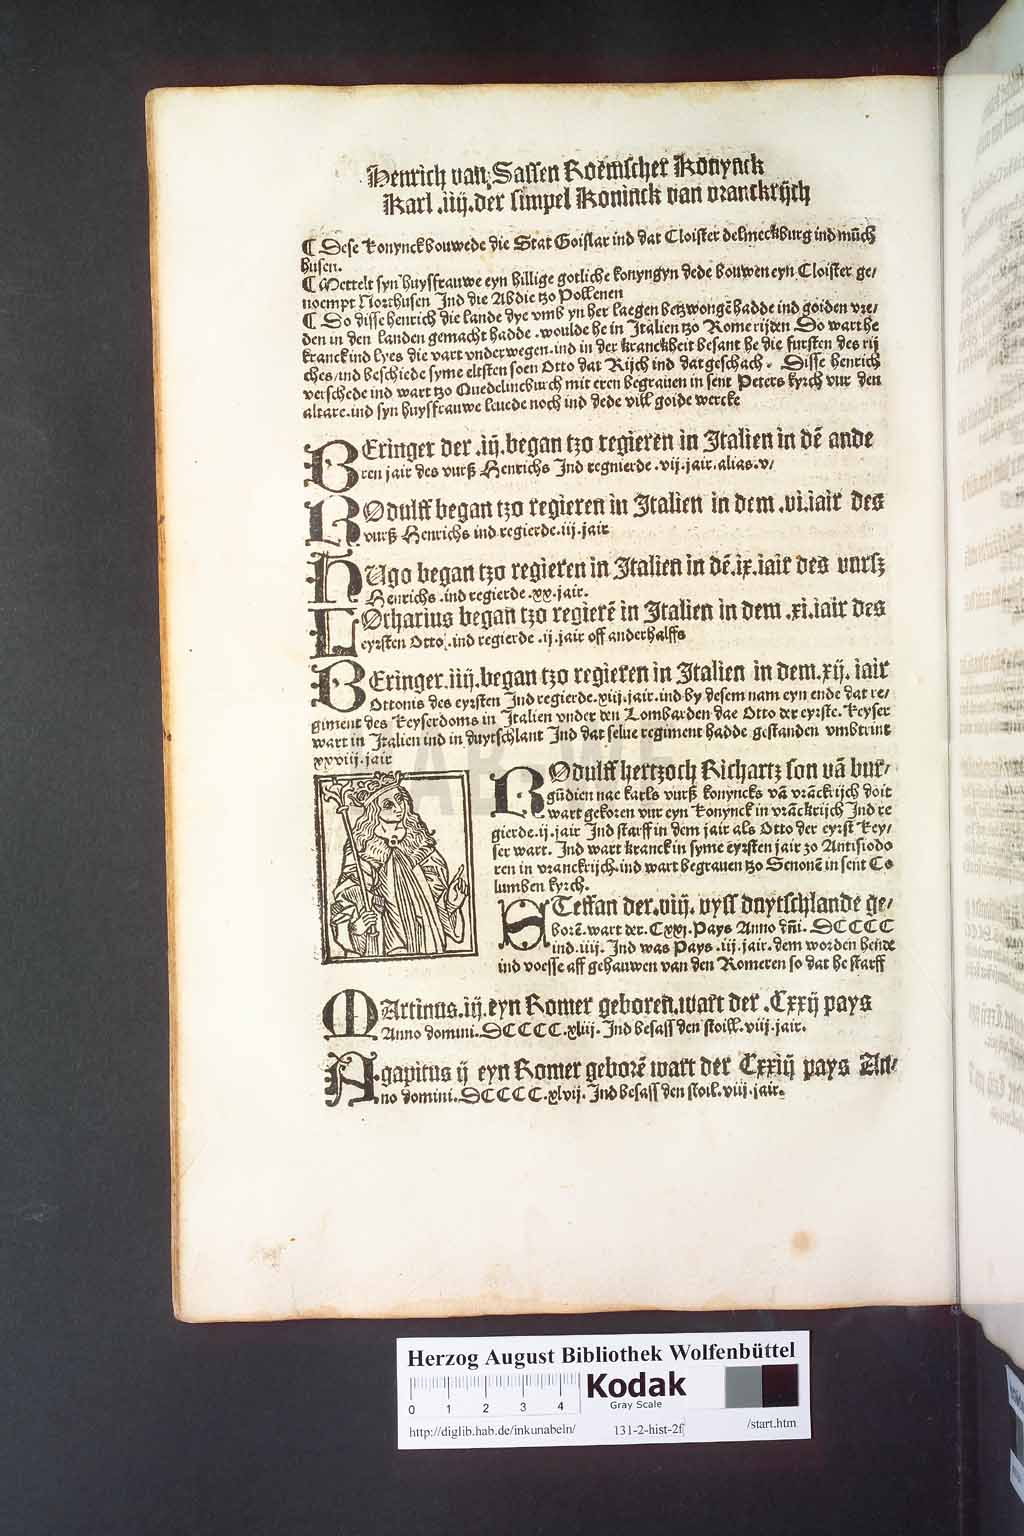 Henrich van Sassen Roemscher Konynck
Karl .iiij. der simpel Koninck van vranckrijch
¶ Dese konynck bouwede die Stat Goislar ind dat Cloister delmeckburg ind mūch
husen.
¶ Mettelt syn huysfrauwe eyn hillige gotliche konyngyn dede bouwen eyn Cloister ge/
noempt Northusen Ind die Abdie tzo Pollenen
¶ Do disse henrich die lande dye vmb yn her laegen betzwongē hadde ind goiden vre/
den in den landen gemacht hadde .woulde he in Italien tzo Rome rijden. Do wart he
kranck ind lyes die vart vnderwegen.ind in der kranckheit besant he die fursten des rij
ches/ind beschiede syme eltsten soen Otto dat Rijch ind dat geschach. Disse henrich
verschede ind wart tzo Quedelineburch mit eren begrauen in sent Peters kyrch vur den
altare.ind syn huysfrauwe leuede noch ind dede vill goide wercke
BEringer der .iij.began tzo regieren in Italien in dē ande
ren jair des vurß Henrichs Ind regnierde .vij.jair.alias.v/
ROdulff began tzo regieren in Italien in dem .vi.iair des
vurß Henrichs ind regierde.iij.jair
HUgo began tzo regieren in Italien in dē.ix.iair des vursz
Henrichs .ind regierde .xx.jair.
LOtharius began tzo regierē in Italien in dem .xi.iair des
eyrsten Otto .ind regierde .ij.jair off anderhalffs
BEringer.iiij.began tzo regieren in Italien in dem.xij. iair
Ottonis des eyrsten Ind regierde.xiij.jair.ind by desem nam eyn ende dat re/
giment des keyserdoms in Italien vnder den Lombarden dae Otto der eyrste. keyser
wart in Italien ind in duytschlant Ind dat selue regiment hadde gestanden vmbtrint
xxviij.jair
ROdulff hertzoch Richartz son vā bur/
gūdien nae karls vurß konyncks vā vrāckrijch doit
wart gekoren vur eyn konynck in vrāckrijch Ind re
gierde.ij.jair Ind starff in dem jair als Otto der eyrst key/
ser wart. Ind wart kranck in syme eyrsten jair zo Antisiodo
ren in vranckrijch.ind wart begrauen tzo Senonē in sent Co
lumben kyrch.
STeffan der.viij. vyss duytschlande ge/
borē.wart der. Cxxj.Pays Anno dñi. DCCCC
ind.iiij. Ind was Pays .iij.jair.dem worden hende
ind voesse aff gehauwen van den Romeren so dat he starff
MArtinus.iij.eyn Romer geboren.wart der .Cxxij pays
Anno domini.DCCCC.xliij. Ind besass den stoill.viij.jair.
Agapitus ij eyn Romer geborē wart der Cxxiij pays An/
no domini.DCCCC.xlvij. Ind besass den stoil.viij.jair.
Herzog August Bibliothek Wolfenbüttel
0 1 2 3 4
Kodak
Gray Scale
http://diglib.hab.de/inkunabeln/ 131-2-hist-2f /start.htm